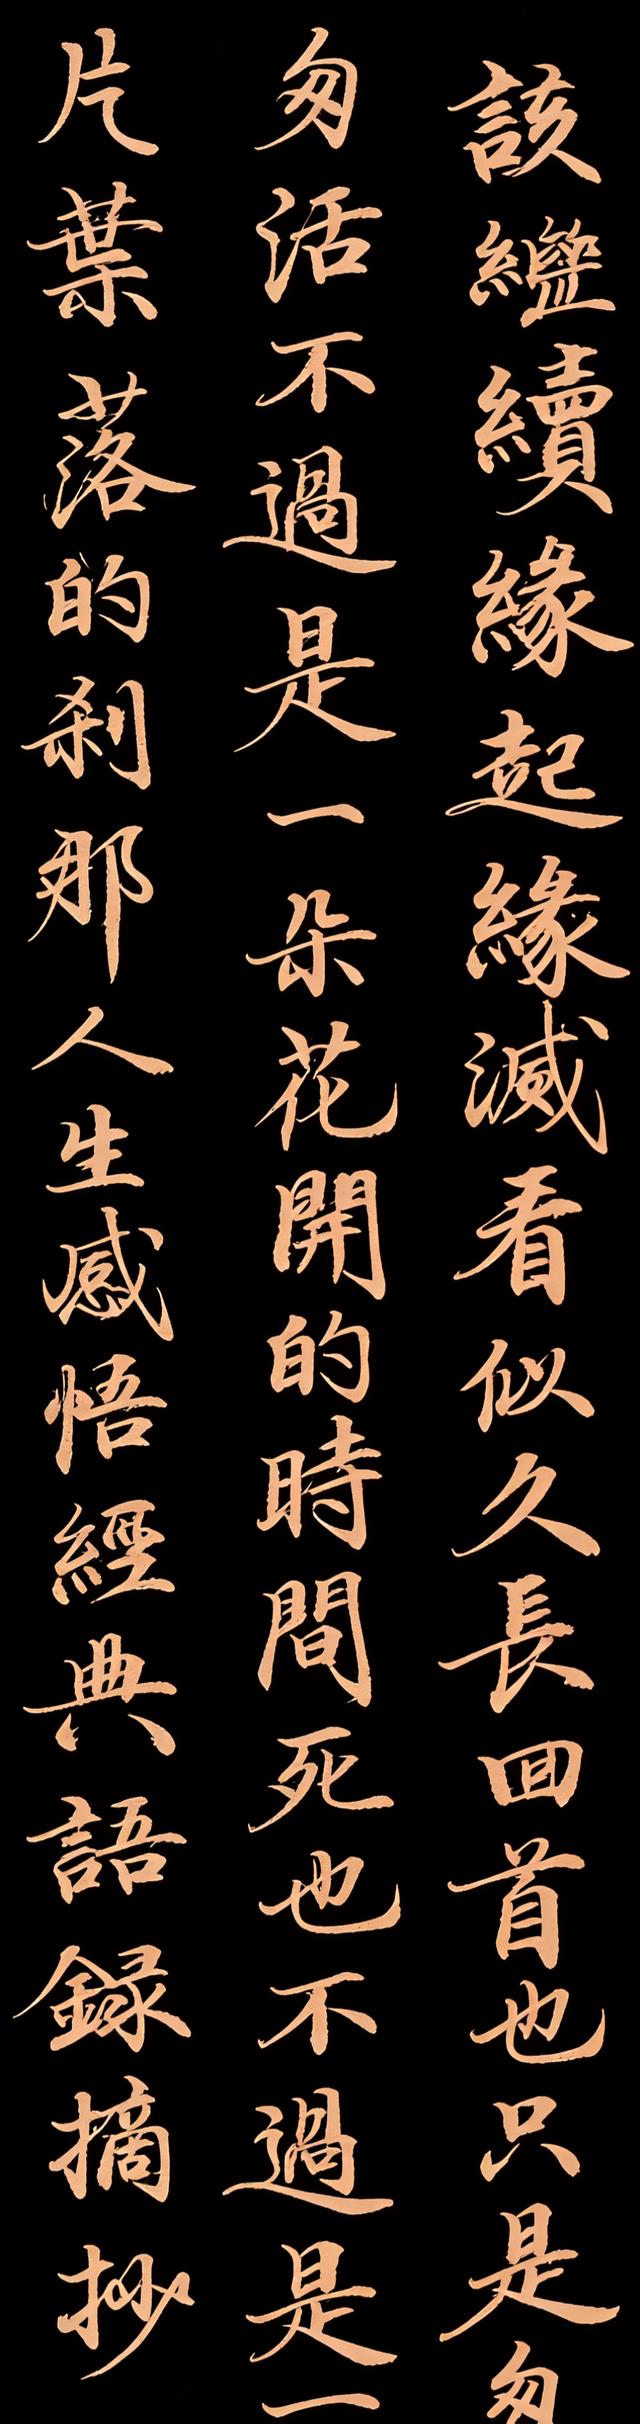 該繼續緣起緣滅看似久長回首也只是匆
匆活不過是一朵花開的時間死也不過是一
片葉落的刹那人生感悟經典語録摘抄